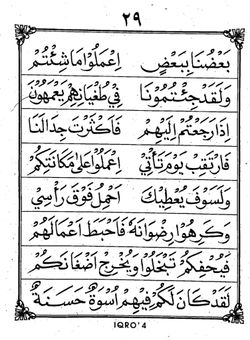 ٢٩
بَعْضُنَا بِبَعْضٍ اِعْمَلُوْا مَا شِئْتُمْ
وَلَقَدْ جِئْتُمُوْنَا فِيْ طُغْيَانِهِمْ يَعْمَهُوْنَ
اِذَا رَجَعْتُمْ اِلَيْهِمْ فَاَكْثَرْتَ جِدَالَنَا
فَارْتَقِبْ يَوْمَ تَأْتِيْ اِعْمَلُوْا عَلٰى مَكَانَتِكُمْ
وَلَسَوْفَ يُعْطِيْكَ اَحْمِلُ فَوْقَ رَأْسِيْ
وَكَرِهُوْا رِضْوَانَهٗ فَاَحْبَطَ اَعْمَالَهُمْ
فَيُحْفِكُمْ تَبْخَلُوْا وَيُخْرِجْ اَضْغَانَكُمْ
لَقَدْ كَانَ لَكُمْ فِيْهِمْ اُسْوَةٌ حَسَنَةٌ
IQRO' 4